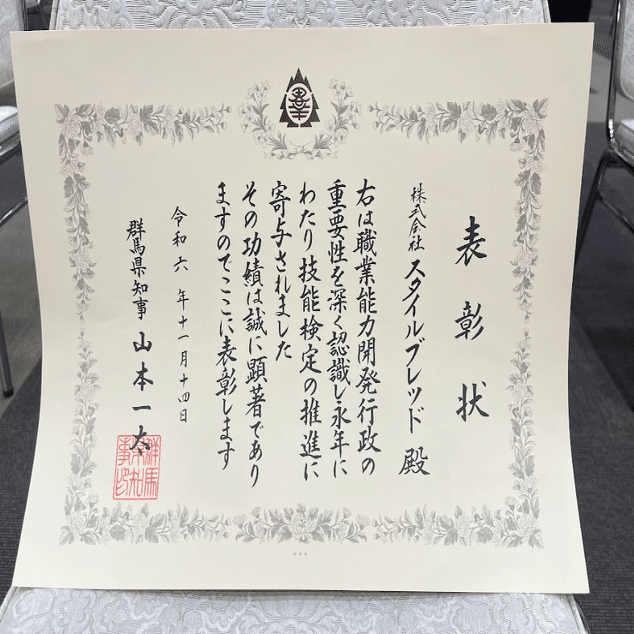 表彰状
株式会社 スタイルブレッド 殿
右は職業能力開発行政の
重要性を深く認識し永年に
わたり技能検定の推進に
寄与されました
その功績は誠に顕著であり
ますのでここに表彰します
令和六年十一月十四日
群馬県知事 山本一太
群馬
県知
事印